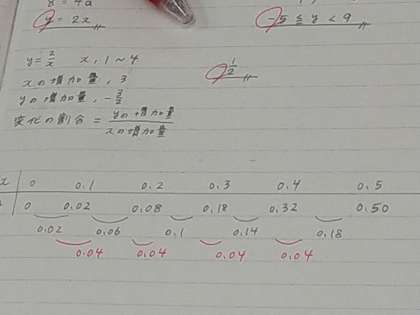 8 = 4a
y = 2x
-5 ≦ y < 9
y = 2/x x, 1 ~ 4
xの増加量, 3
yの増加量, -3/2
変化の割合 = yの増加量/xの増加量
1/2
x 0 0.1 0.2 0.3 0.4 0.5
0 0.02 0.08 0.18 0.32 0.50
0.02 0.06 0.1 0.14 0.18
0.04 0.04 0.04 0.04